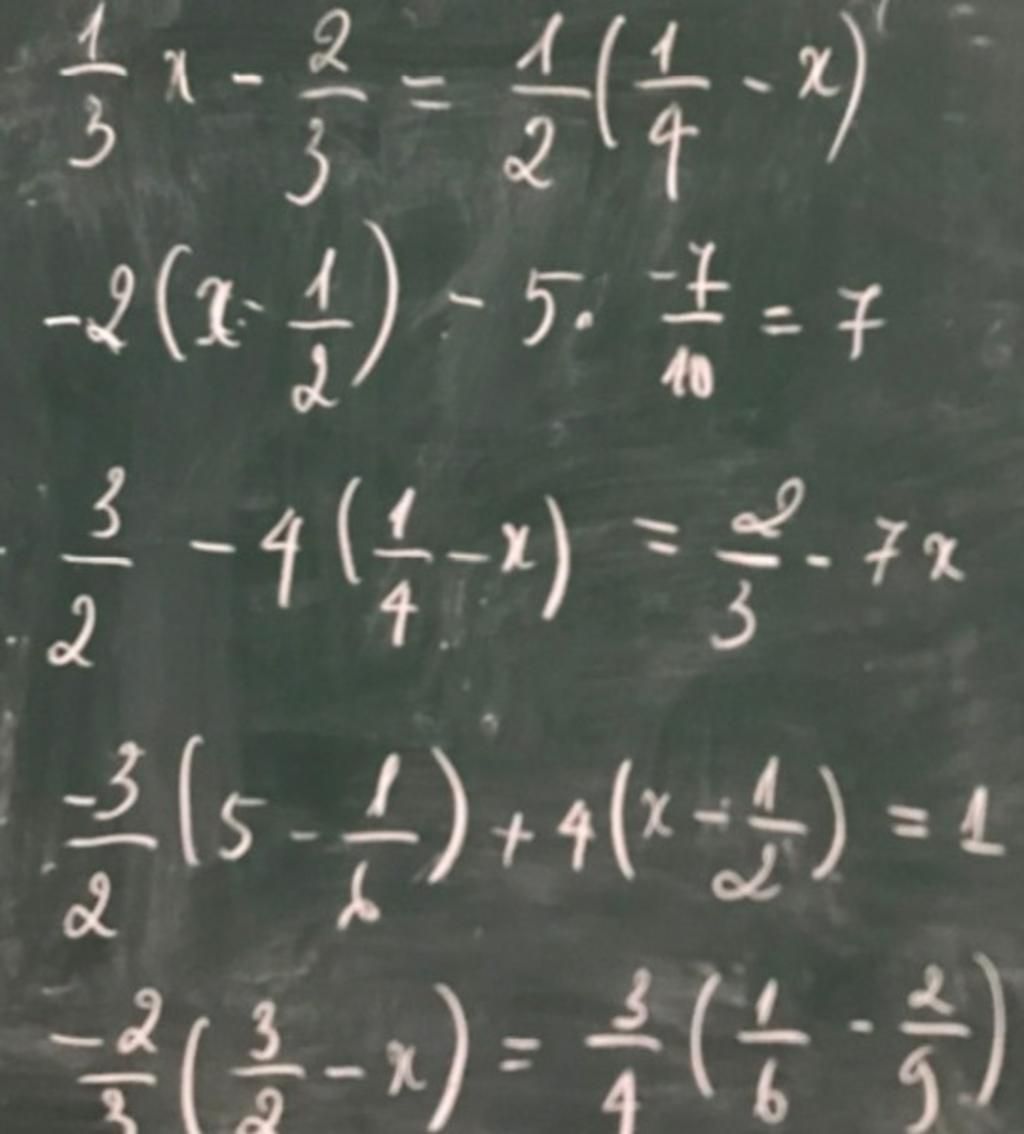 1/3 x - 2/3 = 1/2 (1/4 - x)
-2 (x - 1/2) - 5. -7/10 = 7
3/2 - 4 (1/4 - x) = 2/3 - 7x
-3/2 (5 - 1/6) + 4 (x - 1/2) = 1
-2/3 (3/2 - x) = 3/4 (1/6 - 2/9)